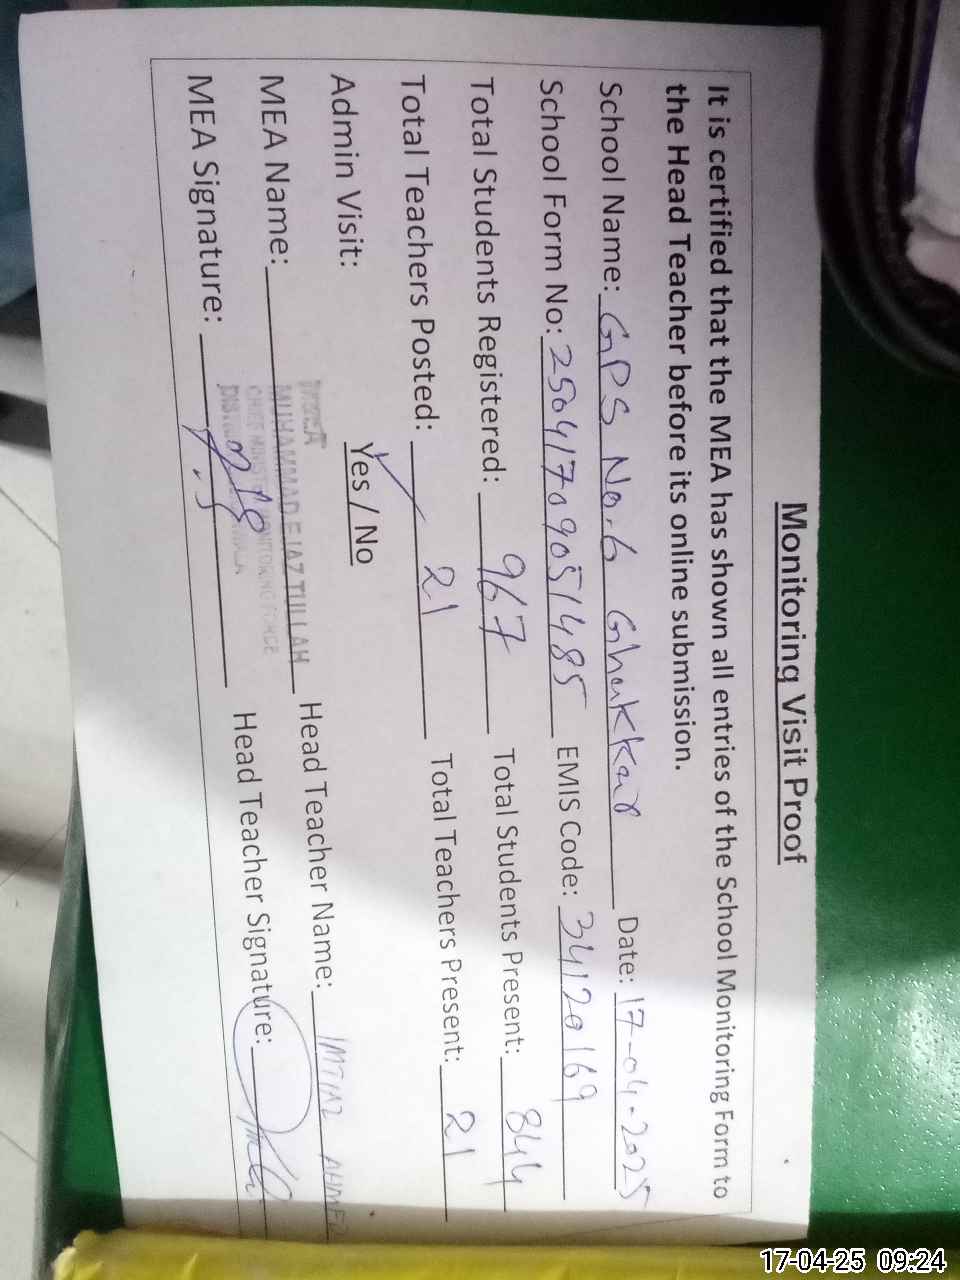 Monitoring Visit Proof
It is certified that the MEA has shown all entries of the School Monitoring Form to
the Head Teacher before its online submission.
School Name: GPS No.6 Ghakkar Date: 17-04-2025
School Form No: 25041709051485 EMIS Code: 34120169
Total Students Registered: 967 Total Students Present: 844
Total Teachers Posted: 21 Total Teachers Present: 21
Admin Visit: Yes / No
MEA Name: MUHAMMAD EJAZ TULLAH Head Teacher Name: IMTIAZ AHMED
MEA Signature: Head Teacher Signature:
17-04-25 09:24